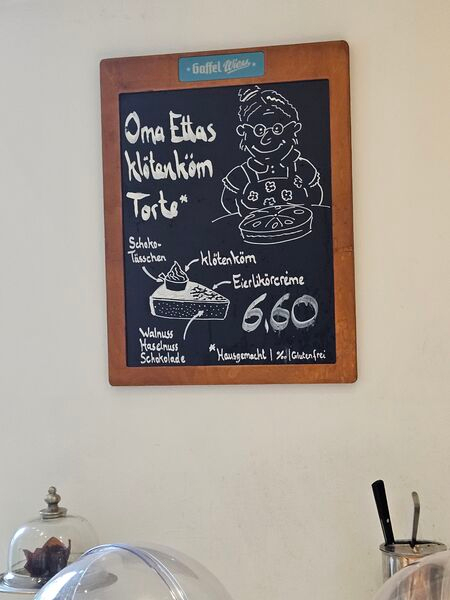 Gaffel Wiess
Oma Ettas
Klötenköm
Torte*
Schoko-
Tässchen
Klötenköm
Eierlikörcréme
6,60
Walnuss
Haselnuss
Schokolade
*Hausgemacht | %- | Glutenfrei